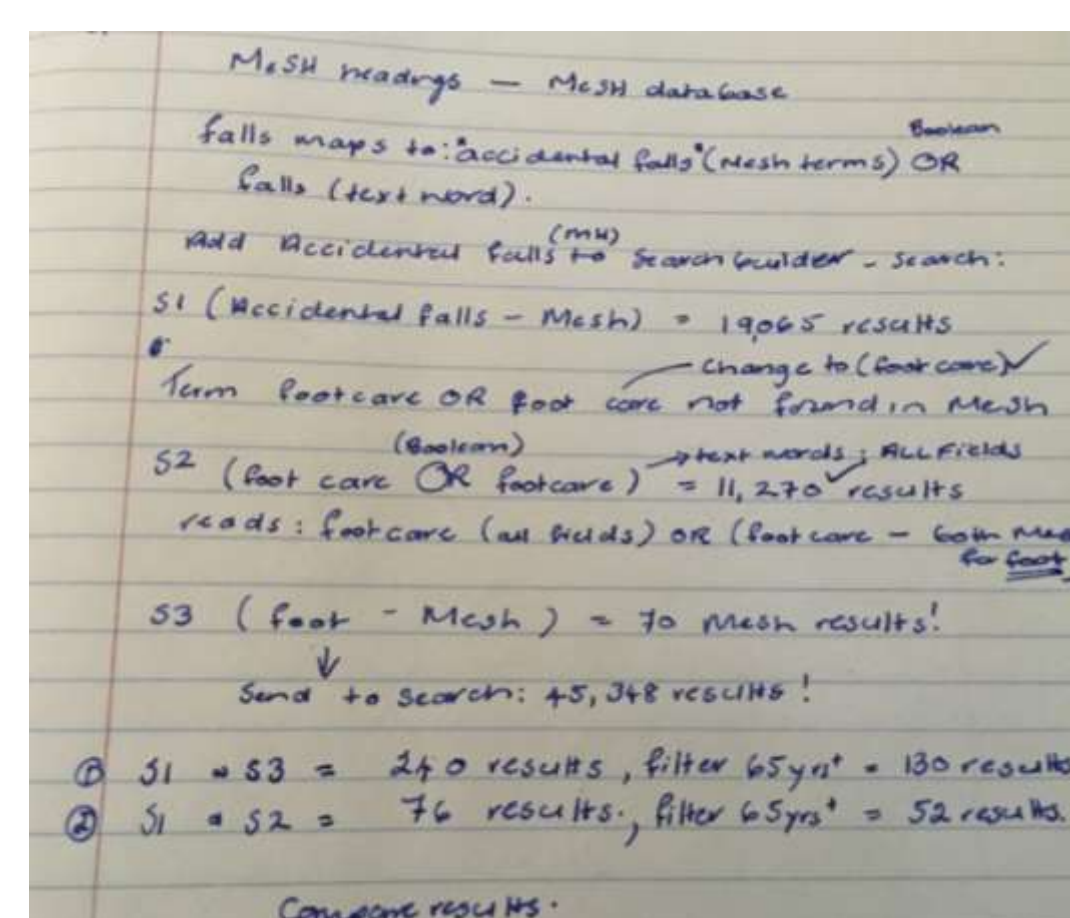 MeSH headings — MeSH database
Boolean
falls maps to: "accidental falls" (Mesh terms) OR
falls (text word).
(MH)
Add Accidental falls to search builder - search:
S1 (Accidental falls - Mesh) = 19,065 results
Change to (foot care) ✓
Term footcare OR foot care not found in Mesh
(Boolean)
→ text words ; ALL Fields
S2 (foot care OR footcare) = 11,270 ✓ results
reads: footcare (all fields) OR (foot care - both
for foot
S3 (foot - Mesh) = 70 Mesh results!
↓
Send to search: 45,348 results!
① S1 + S3 = 240 results, filter 65yrs+ = 130 results
② S1 + S2 = 76 results., filter 65yrs+ = 52 results.
Compare results.